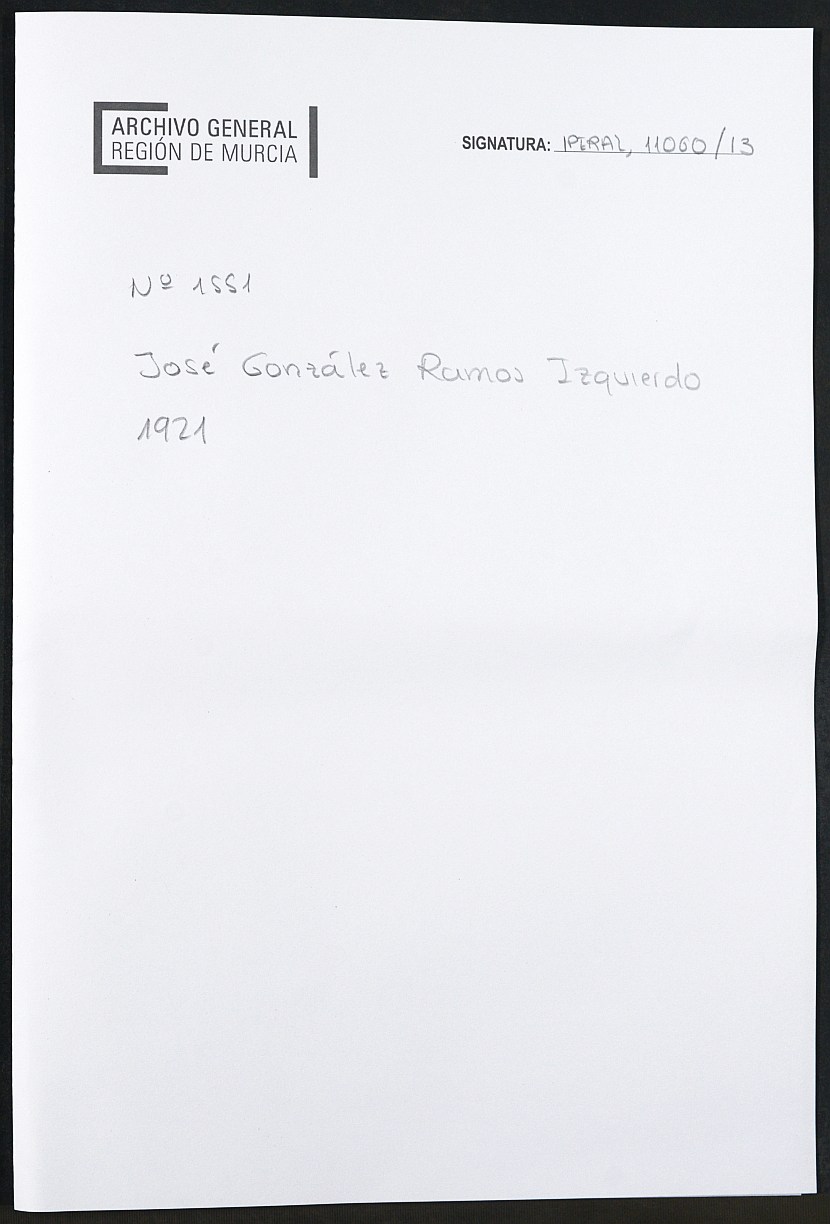 ARCHIVO GENERAL
REGIÓN DE MURCIA
SIGNATURA: IPERAL, 11060/13
Nº 1551
José González Ramos Izquierdo
1921